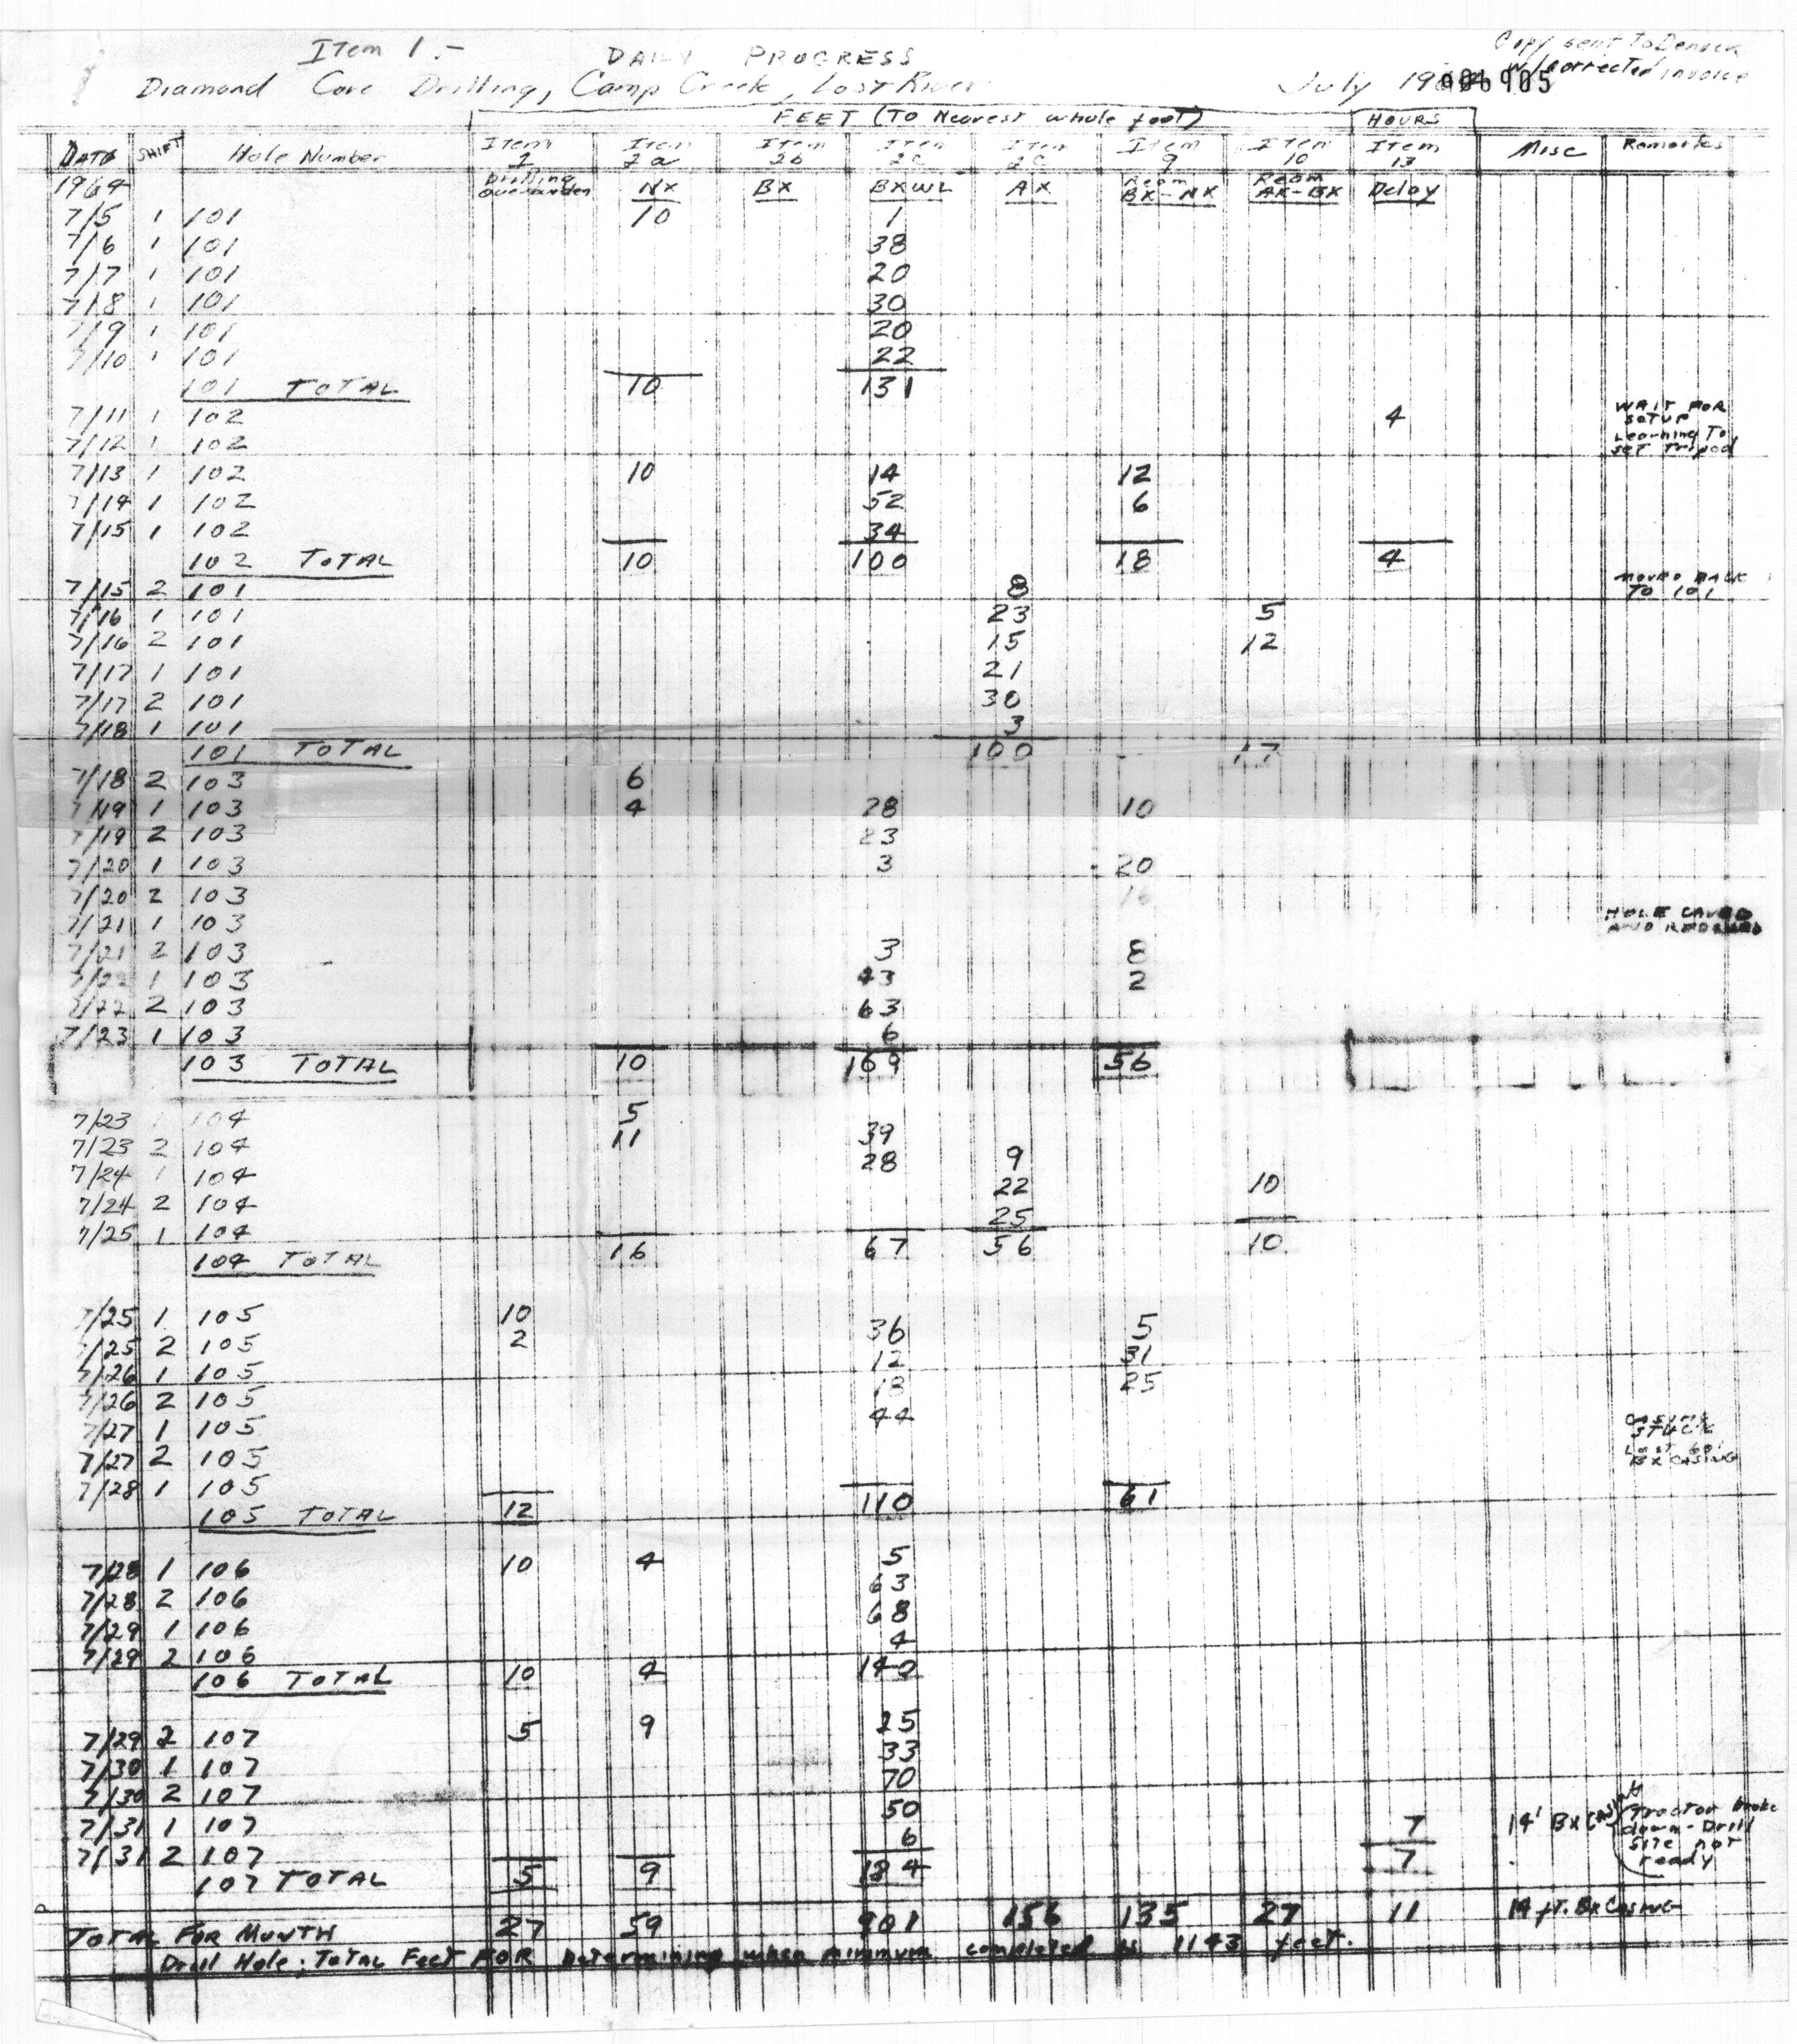 Item 1.-
DAILY PROGRESS
Copy sent To
w/corrected invoice
Diamond Core Drilling, Camp Creek, Lost River
July 19 905
FEET (To Nearest whole foot)
HOURS
DATE SHIFT Hole Number Item 1 Item 2a Item 2b Item 2c Item 2c Item 9 Item 10 Item 13 Misc Remarks
1964 Drilling overburden NX BX BXWL AX Ream BX-NX Ream AX-BX Delay
7/5 1 101 10 1
7/6 1 101 38
7/7 1 101 20
7/8 1 101 30
7/9 1 101 20
7/10 1 101 22
101 TOTAL 10 131
7/11 1 102 4 WAIT FOR SETUP
7/12 1 102 Learning To SET Tripod
7/13 1 102 10 14 12
7/14 1 102 52 6
7/15 1 102 34
102 TOTAL 10 100 18 4
7/15 2 101 8 MOVED BACK TO 101
7/16 1 101 23 5
7/16 2 101 15 12
7/17 1 101 21
7/17 2 101 30
7/18 1 101 3
101 TOTAL 100 17
7/18 2 103 6
7/19 1 103 4 28 10
7/19 2 103 23
7/20 1 103 3 20
7/20 2 103 16
7/21 1 103 HOLE CAVED AND
7/21 2 103 3 8
7/22 1 103 43 2
7/22 2 103 63
7/23 1 103 6
103 TOTAL 10 169 56
7/23 1 104 5
7/23 2 104 11 39
7/24 1 104 28 9
7/24 2 104 22 10
7/25 1 104 25
104 TOTAL 16 67 56 10
7/25 1 105 10
7/25 2 105 2 36 5
7/26 1 105 12 31
7/26 2 105 18 25
7/27 1 105 44
7/27 2 105 CASING STUCK
7/28 1 105 LOST 60' BX CASING
105 TOTAL 12 110 61
7/28 1 106 10 4 5
7/28 2 106 63
7/29 1 106 68
7/29 2 106 4
106 TOTAL 10 4 140
7/29 2 107 5 9 25
7/30 1 107 33
7/30 2 107 70
7/31 1 107 50 7 14' BX Tractor broke down - Drill
7/31 2 107 6 site not ready
107 TOTAL 5 9 184 7
TOTAL FOR MONTH 27 59 901 156 135 27 11 14 ft. BX CASING
Drill Hole; TOTAL FEET FOR Determining when minimum completed is 1143 feet.